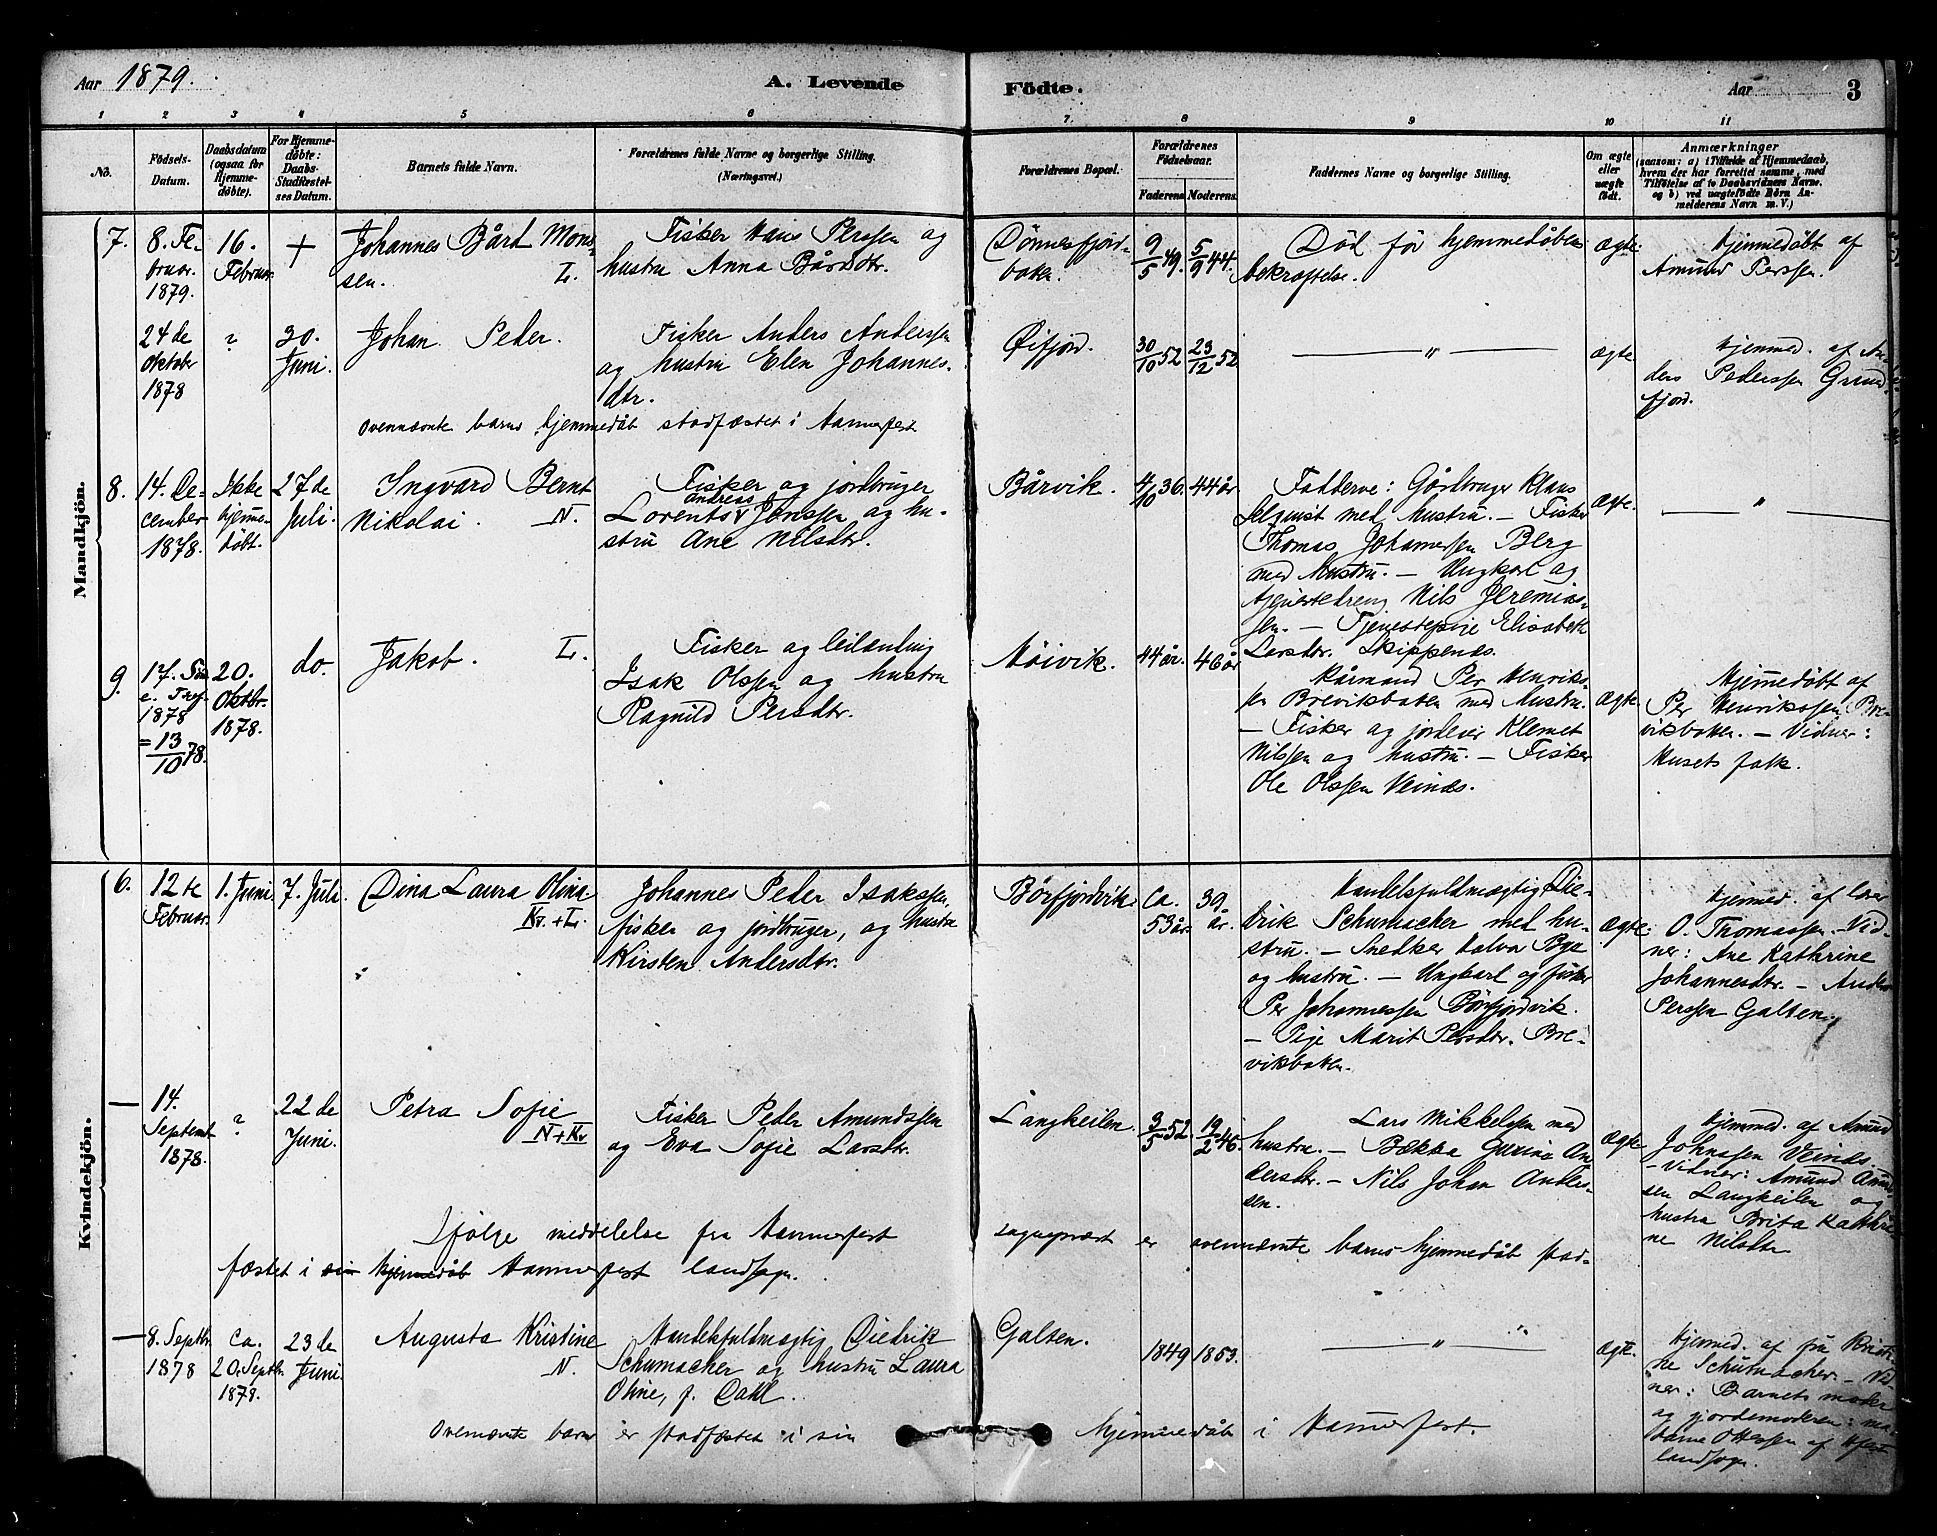 Aar 1879.
A. Levende
Födte.
Aar
3
1 2 3 4 5 6 7. 8 9 10 11
No.
Födsels-
Datum.
Daabsdatum
(ogsaa for
Hjemme-
döbte).
For Hjemme-
döbte:
Daabs-
Stadfæstel-
ses Datum.
Barnets fulde Navn.
Forældrenes fulde Navne og borgerlige Stilling.
(Næringsvei.)
Forældrenes Bopæl.
Forældrenes
Födselsaar.
Faderens.
Moderens.
Faddernes Navne og borgerlige Stilling.
Om ægte
eller
uægte
födt.
Anmærkninger
(saasom: a) i Tilfælde af Hjemmedaab,
hvem der har forrettet samme, med
Tilföielse af to Daabsvidners Navne,
og b) ved uægtefödte Börn An-
melderens Navn m. V.)
Mandkjön.
7.
8. Fe-
bruar.
1879.
16.
Februar.
+
Johannes Bård Mons-
sen. L.
Fisker Hans Perssen og
hustru Anna Bårdsdtr.
Dönnesfjord-
baken.
9/5 49.
5/9 44.
Död för hjemmedåbens
bekræftelse.
ægte
Hjemmedöbt af
Amund Perssen.
24de
Oktober
1878
?
30.
Juni.
Johan Peder.
Fisker Anders Anderssen
og hustru Elen Johannes-
dtr.
Öifjord.
30/10 52
23/12 52
— " —
ægte
Hjemmed. af An-
ders Pederssen Grund
fjord.
Ovennævnte barns hjemmedåb stadfæstet i Hammerfest
8.
14. De-
cember
1878.
Ikke
hjemme-
döbt.
27de
Juli.
Ingvard Bernt
Nikolai. N.
Fisker og jordbruger
Lorents Andreas Jonssen og hu-
stru Ane Nilsdtr.
Bårvik.
4/10 36.
44 år.
Fadderne: Gårdbruger Klaus
med hustru. — Fisker
Thomas Johannessen Berg
med hustru. — Ungkarl og
tjenestedreng Nils Jeremias-
sen. — Tjenestepige Elisabeth
Larsdtr. Skippernes.
ægte.
— " —
9.
17. Sön
e. Tref.
1878
= 13/10 78.
20.
Oktbr.
1878.
do.
Jakob. L.
Fisker og leilænding
Isak Olssen og hustru
Ragnild Persdtr.
Möivik.
44 år.
46 år
Kårmand Per Henriks-
sen Brevikbaken med hustru.
— Fisker og jordeier Klemet
Nilssen og hustru. — Fisker
Ole Olssen Veines.
ægte.
Hjemmedöbt af
Per Henrikssen Bre-
vikbaken. — Vidner:
Husets folk.
Kvindekjön.
6.
12te
Februar.
1. Juni
7. Juli.
Dina Laura Olina
Kv. + L.
Johannes Peder Isakssen,
fisker og jordbruger, og hustru
Kirsten Andersdtr.
Börfjordvik.
Ca.
53 år.
39
år.
Handelsfuldmægtig Die-
drik Schumacher med hu-
stru. — Snedker Halvor Bye
og hustru. — Ungkarl og fisker
Per Johannessen Börfjordvik.
— Pige Marit Persdtr. Bre-
vikbaken.
ægte.
Hjemmed. af lærer
O. Thomassen. — Vid-
ner: Ane Kathrine
Johannesdtr. — Anders
Perssen Galten.
—
14.
Septembr
1878.
?
22de
Juni.
Petra Sofie
N + Kv
Fisker Peder Amundssen
og Eva Sofie Larsdtr.
Langkeilen.
3/5 52
19/2 46.
Lars Mikkelsen med
hustru. — Bækka Gurina An
dersdtr. — Nils Johan Anders-
sen.
ægte
Hjemmed. af Amund
Johnssen Veines
— Vidner: Amund Amund
sen Langkeilen og
hustru Brita Kathri
ne Nilsdtr
Ifölge meddelelse fra Hammerfest sogneprest er ovennævnte barns hjemmedåb stad-
fæstet i sin hjemmedåb Hammerfest landsogn.
—
8. Septbr.
1878
Ca.
20. Septbr.
1878.
23de
Juni.
Augusta Kristine
N.
Handelsfuldmægtig Diedrik
Schumacher og hustru Laura
Oline, f. Dahl.
Galten.
1849
1853.
— " —
ægte.
Hjemmed. af fru Kristi-
ne Schumacher. — Vid-
ner: Barnets moder
og gjordemoderen: ma-
dame Ottessen af Hfest
landsogn.
Ovennævnte barn er stadfæstet i sin hjemmedåb i Hammerfest.